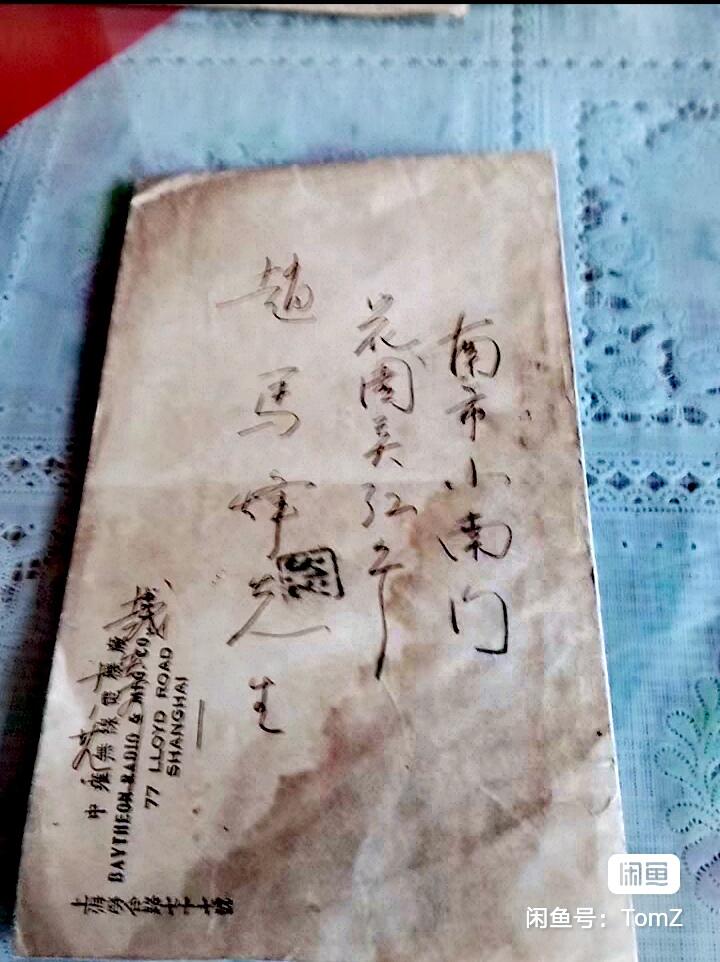 南市小南门
花園美弘弄
趙馬烽先生
中雍無線電機廠
BAYTHEON RADIO & MFG. CO.
77 LLOYD ROAD
SHANGHAI
上海勞合路七十七號
闲鱼
闲鱼号：TomZ